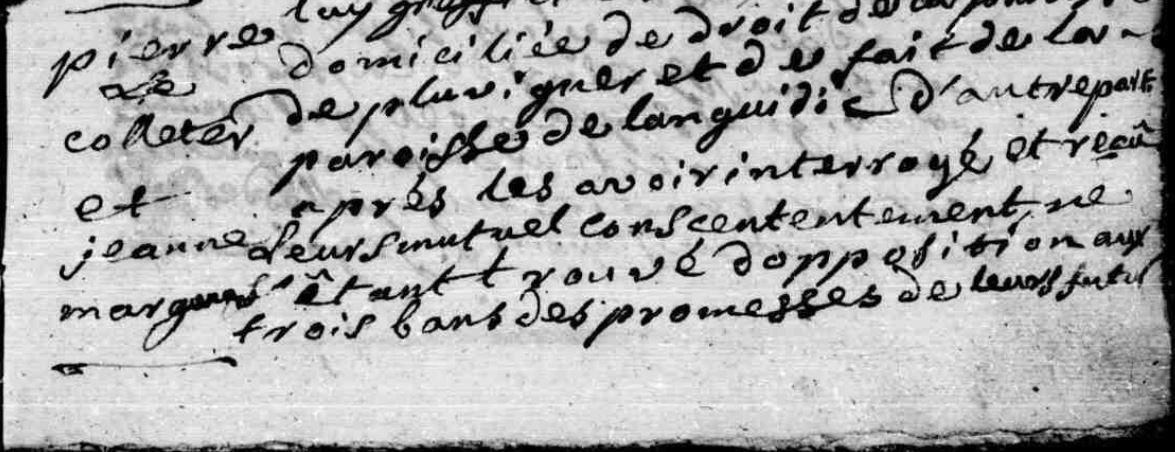 pierre
Le
colleter
et
jeanne
domiciliée de droit de
de pluvigner et de fait de la
paroisse de languidic d'autre part
après les avoir interrogé et reçû
leurs mutuel conscententement, ne
s'êtant trouvé d'opposition aux
trois bans des promesses de leurs futur